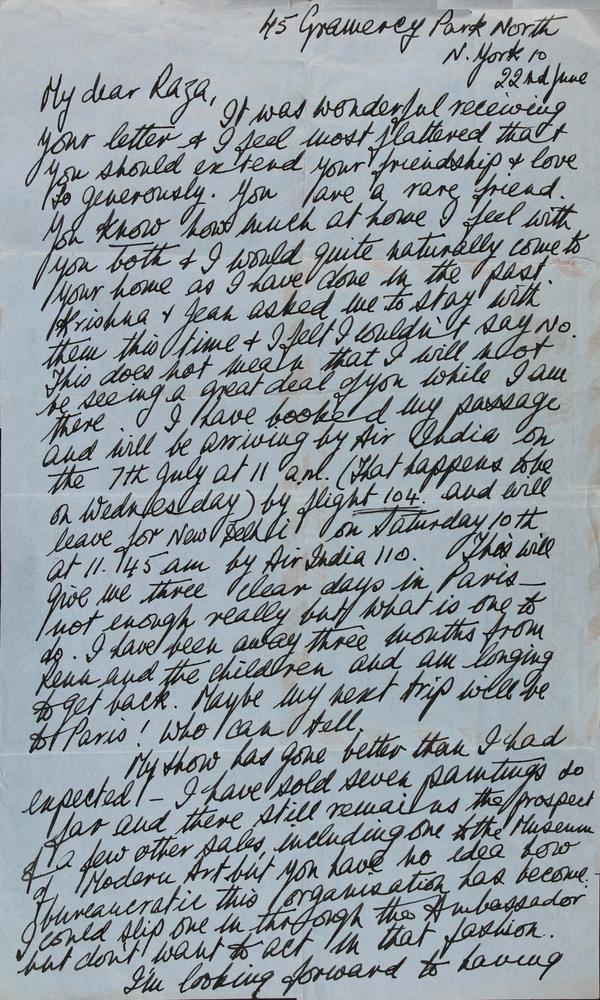 45 Gramercy Park North
N. York 10
22nd June
My dear Raza,
It was wonderful receiving
your letter & I feel most flattered that
you should extend your friendship & love
so generously. You are a rare friend.
You know how much at home I feel with
you both & I would quite naturally come to
your home as I have done in the past.
Krishna & Jean asked me to stay with
them this time & I felt I couldn't say No.
This does not mean that I will not
be seeing a great deal of you while I am
there. I have booked my passage
and will be arriving by Air India on
the 7th July at 11 a.m. (That happens to be
on Wednesday) by flight 104. and will
leave for New Delhi on Saturday 10th
at 11.45 am by Air India 110. This will
give me three clear days in Paris —
not enough really but what is one to
do. I have been away three months from
Renu and the children and am longing
to get back. Maybe my next trip will be
to Paris! Who can tell.
My show has gone better than I had
expected — I have sold seven paintings so
far and there still remains the prospect
of a few other sales, including one to the Museum
of Modern Art but you have no idea how
bureaucratic this organisation has become.
I could slip one in through the Ambassador
but don't want to act in that fashion.
I'm looking forward to having